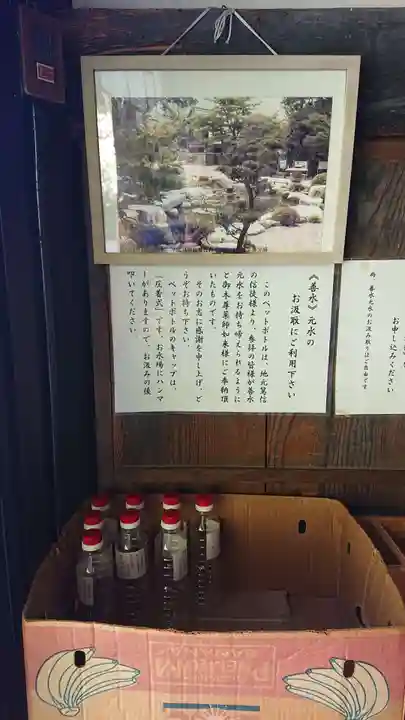 《善水》元水の
お汲取にご利用下さい
このペットボトルは、地元篤信
の信徒様より、参拝の皆様が善水
元水をお持ち帰えられるように
と御本尊薬師如来様にご奉納頂
いたものです。
そのお志に感謝を申し上げ、ど
うぞお持ち下さい。
ペットボトルのキャップは、
「圧着式」です。お水場にハンマ
ーがありますので、お汲みの後
叩いてください。
お申し込みください
尚 善水元水のお汲み取りはご自由です
PREMIUM
BANANA